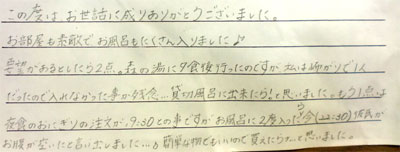 この度は、お世話に成りありがとうございました。
お部屋も素敵でお風呂もたくさん入りました♪
要望があるとしたら2点。森の湯に夕食後行ったのですが 私は 1人
だったので入れなかった事が残念…貸切風呂に出来たら!と思いました。もう1点は
夜食のおにぎりの注文が、9:30との事ですがお風呂に2度入ったら今(22:30)彼氏が
お腹が空いたと言い出しました…。簡単な物でもいいので買えたらナ…と思いました。